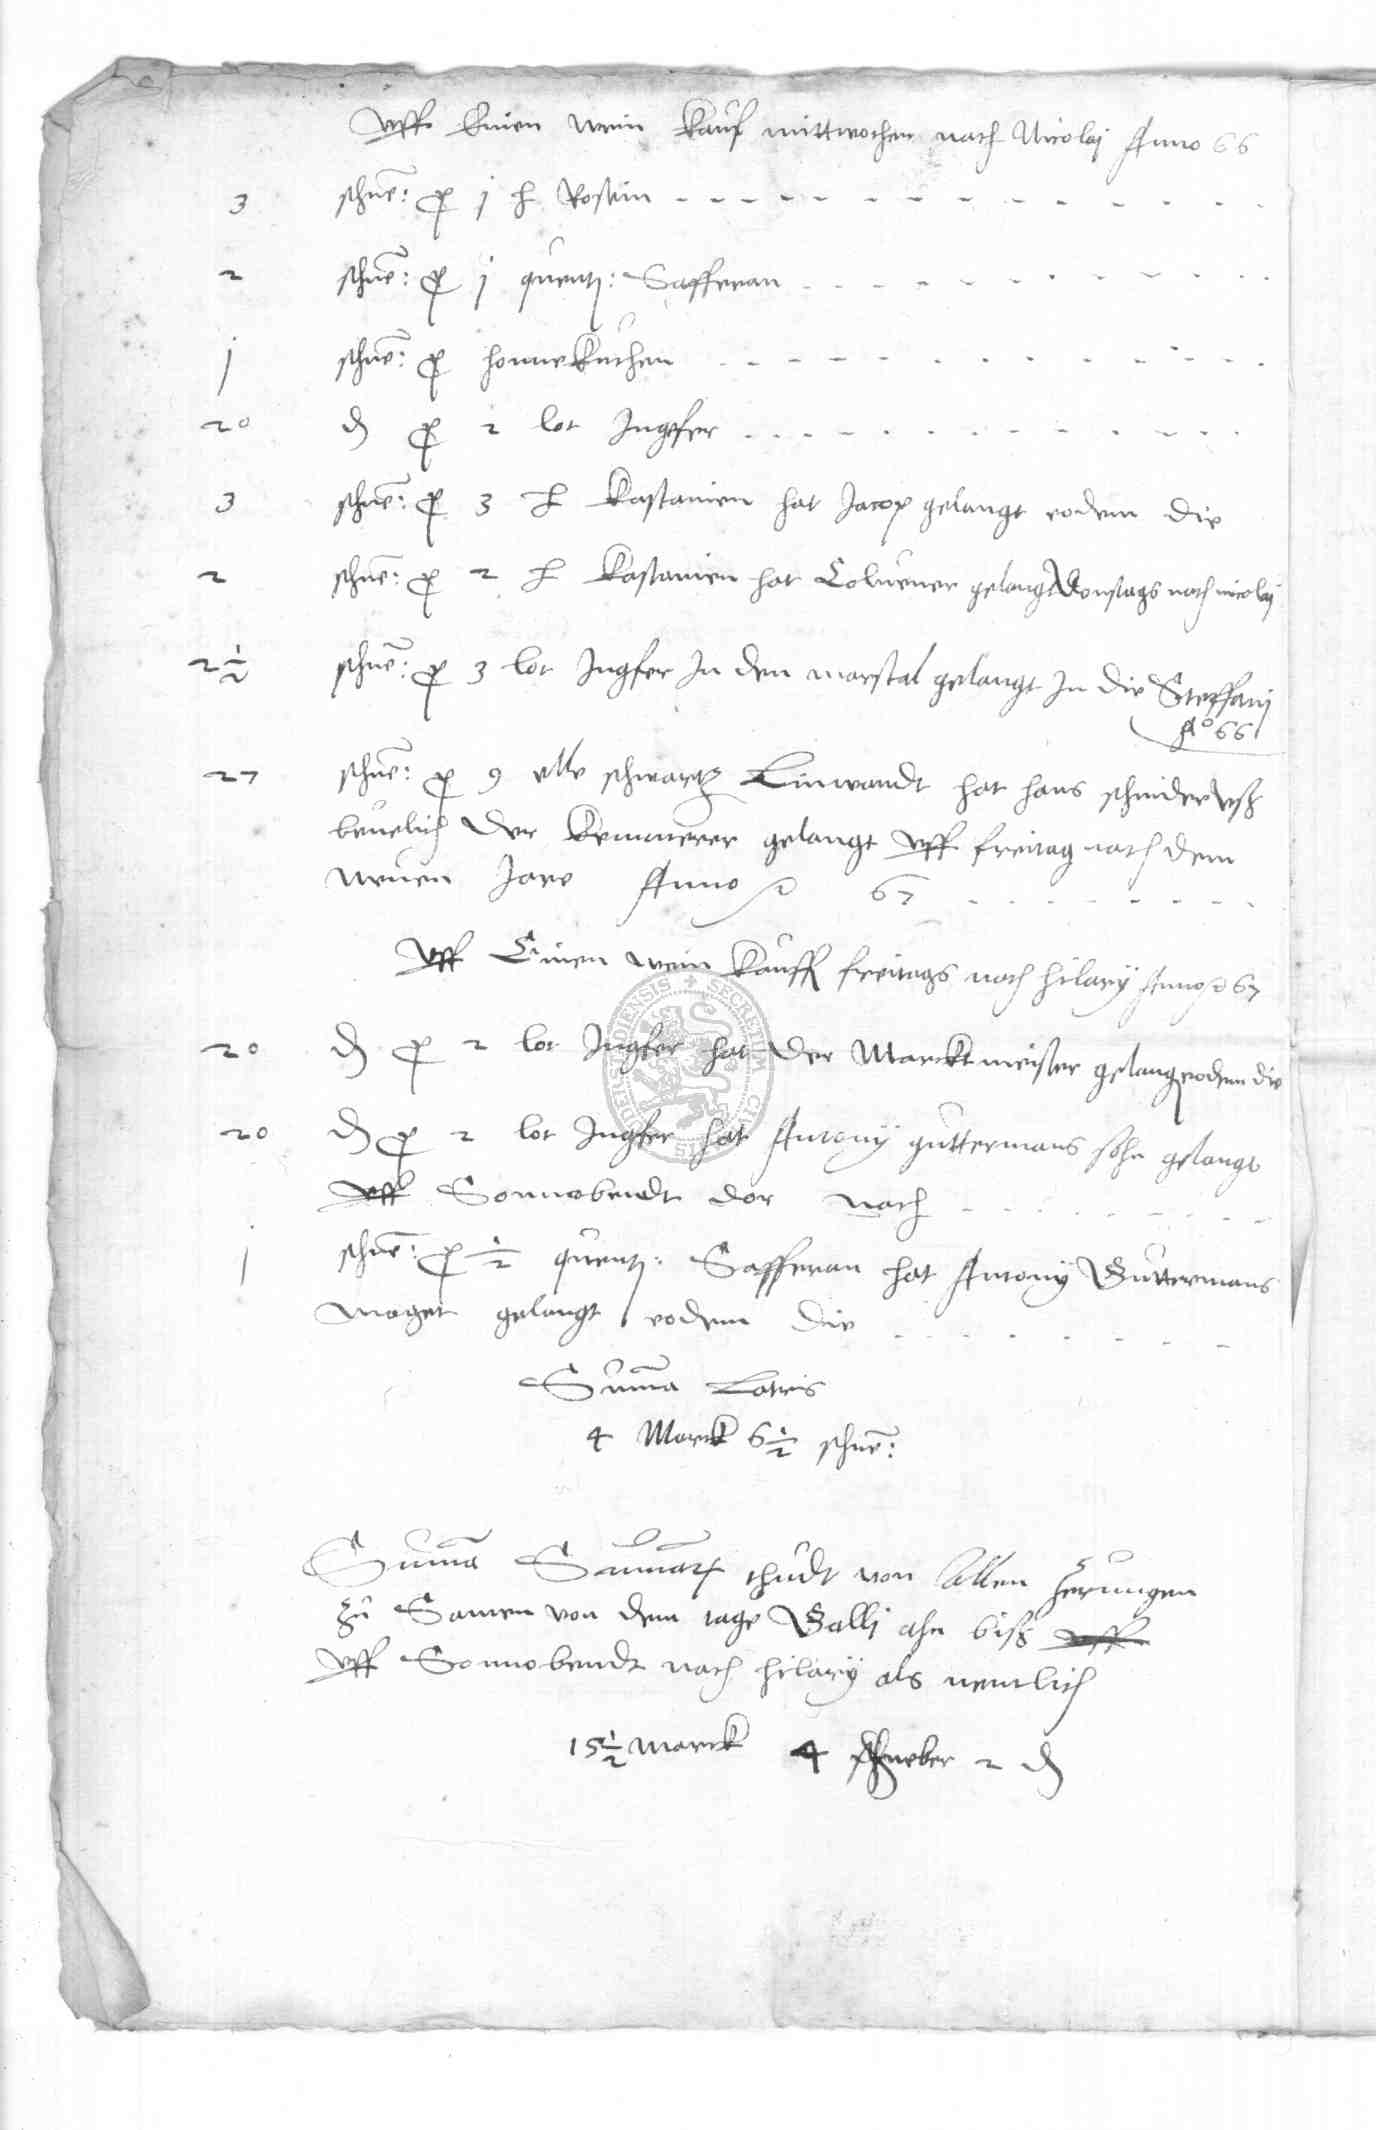 uff Einen wein kauf mittwochen nach Nicolaj Anno 66
3 schne: p j ℔ Rosein
2 schne: p j quentj: Safferan
j schne: p honnekuchen
20 d p 2 lot Jngefer
3 schne: p 3 ℔ kastanien hat Jacop gelangt eodem die
2 schne: p 2 ℔ kastanien hat gelangt Donstags nach nicolaj
2½ schne: p 3 lot Jngfer Jn den marstal gelangt Jn die Steffanj
Ao 66
27 schne: p 9 elle schwartz Linwandt hat hans schnider uß
beuelich der kemmerer gelangt uff freitag nach dem
neuen Jare Anno 67
uff Einen wein kauff freitags nach hilarÿ Anno 67
20 d p 2 lot Jngfer hat der Marcktmeister gelangt eodem die
20 d p 2 lot Jngfer hat Antonÿ guttermans sohn gelangt
uff Sonnabendt dar nach
j schne: p ½ quentj: Safferan hat Antonÿ Guttermans
maget gelangt eodem die
Summa Lateris
4 Marck 6½ schne:
Summa Summarum thudt von allen zerungen
zu Samen von dem tage Gallj ahn biß uff
uff Sonnobendt nach hilarÿ als nemlich
15½ marck 4 schneber 2 d
SECRETUM